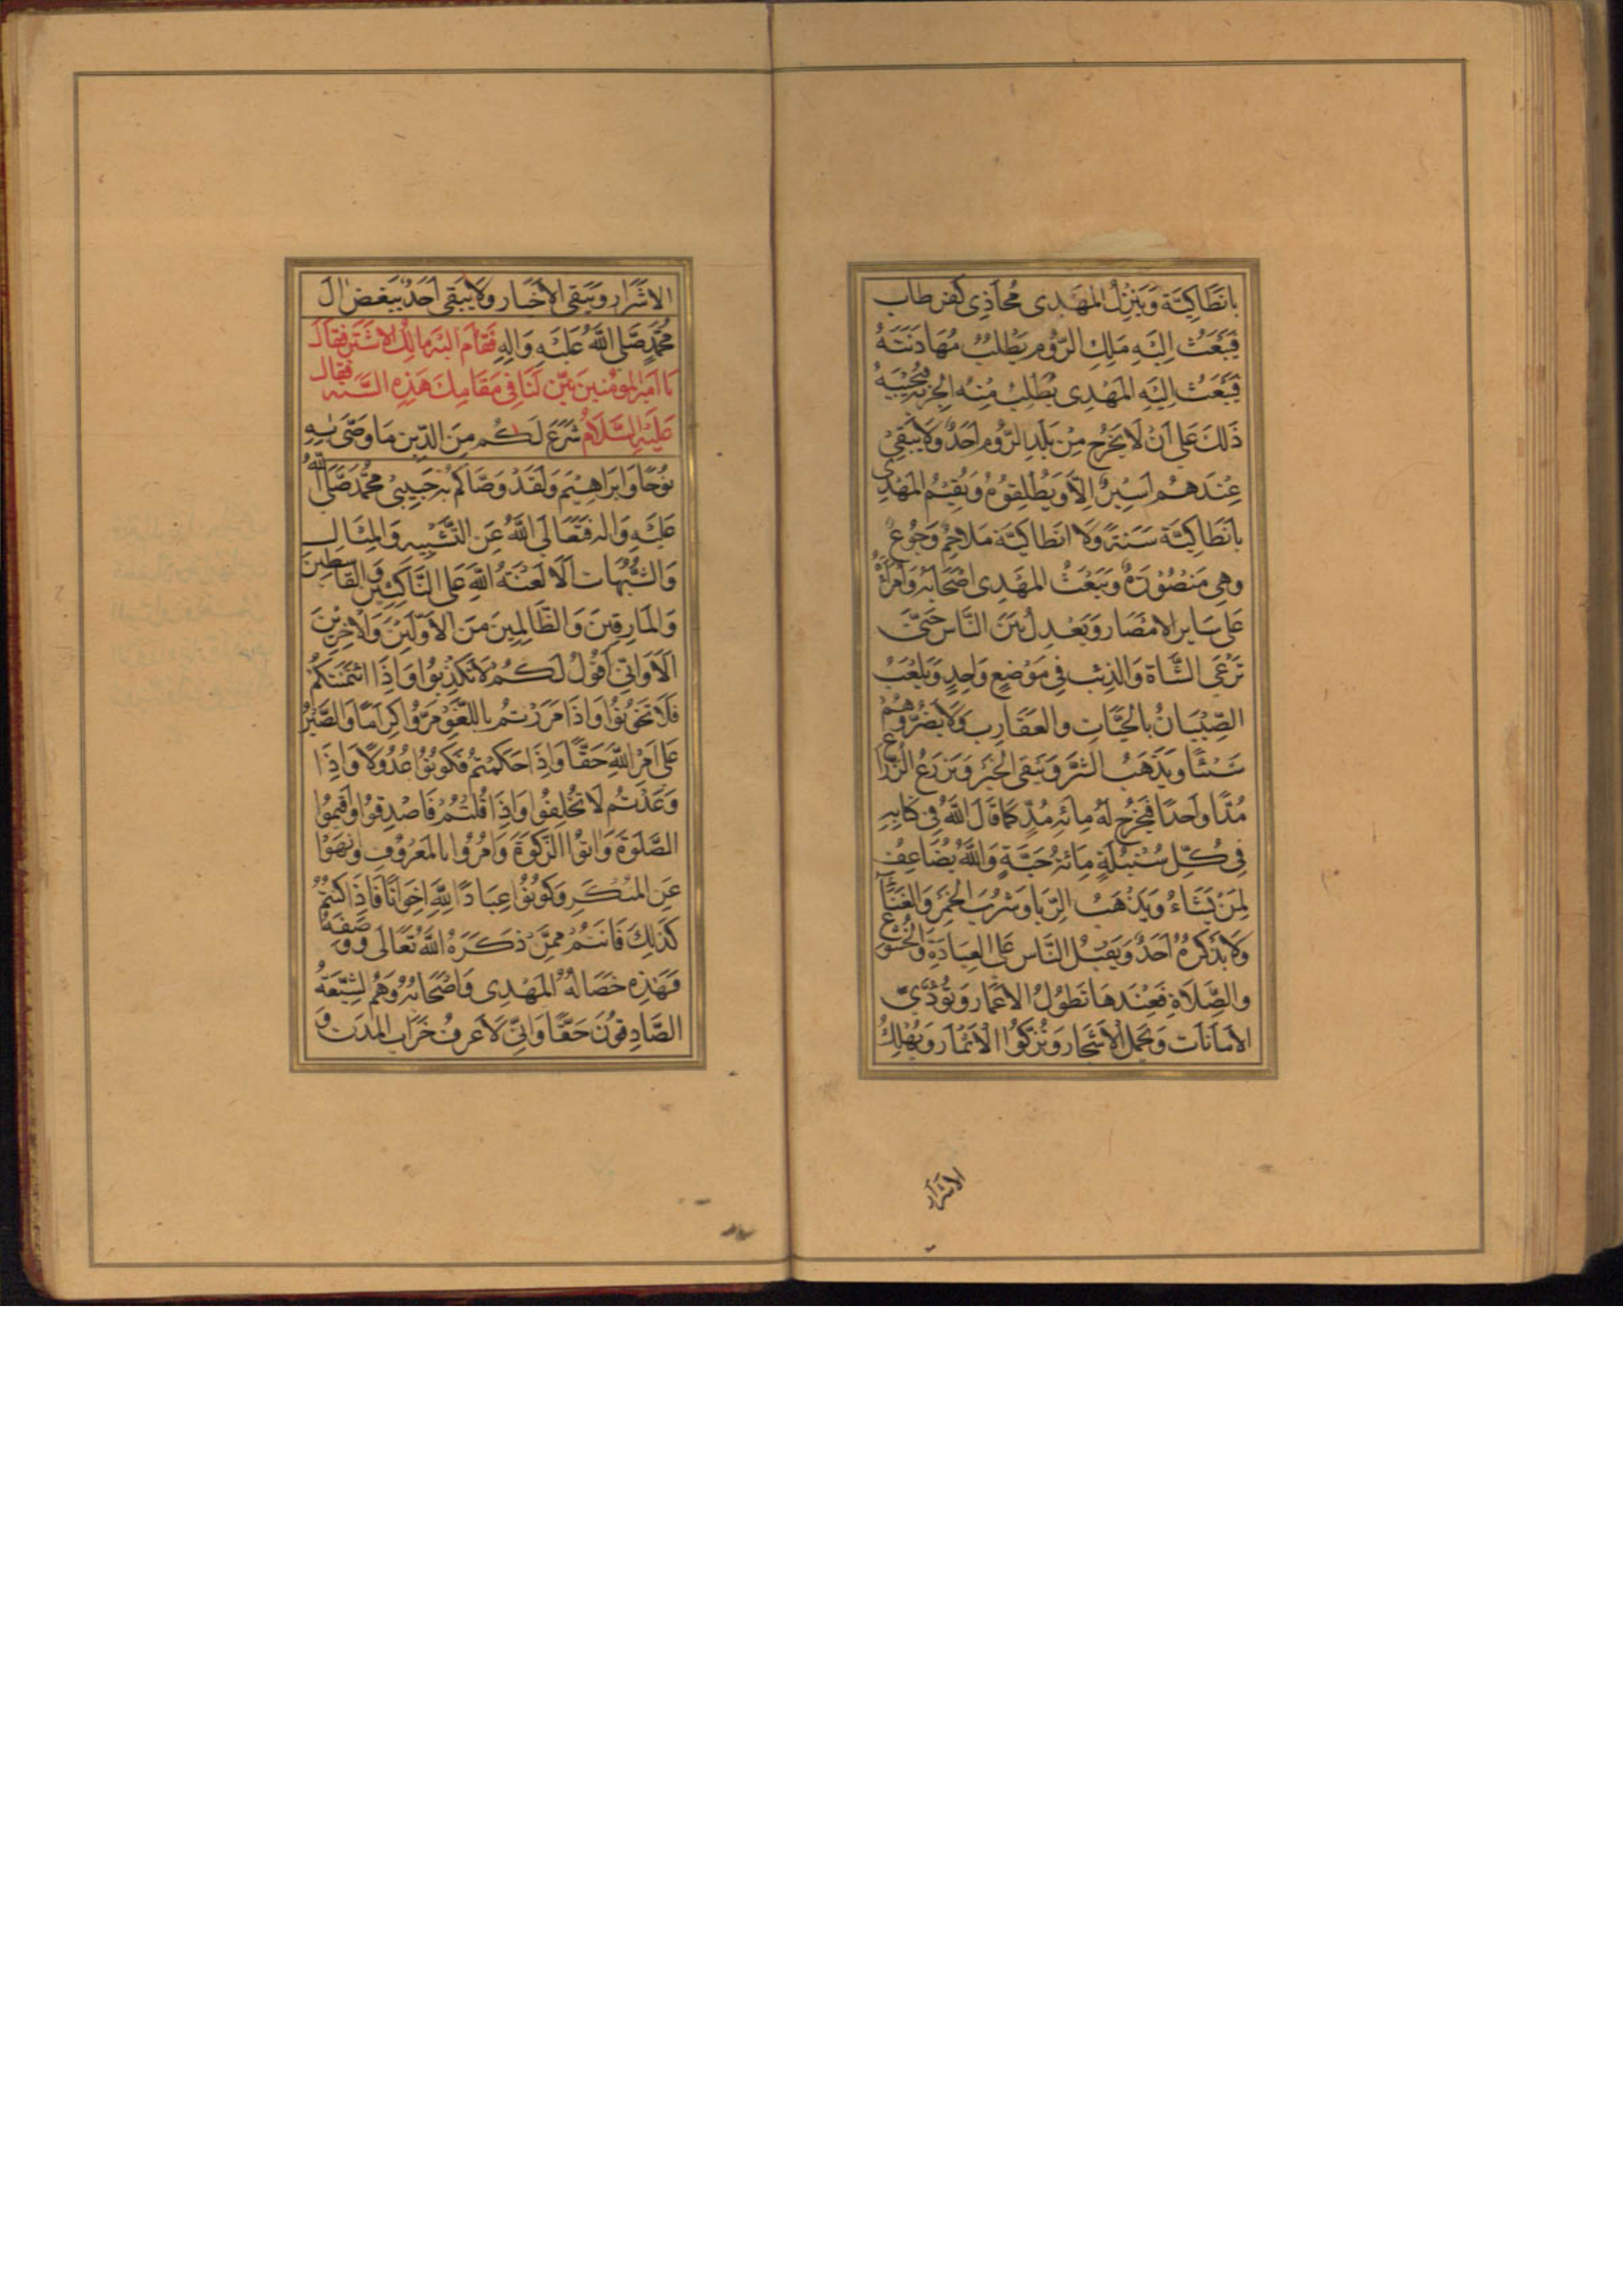 بانطاكِيَّة وَيَنْزِلُ المهَدى مُحَاذِى كفر طاب
فَيَبْعَثُ اِليَهِ مَلِكِ الرّوُم يَطْلبُ مُهَادَنَتَهُ
فَيَبْعَثُ اِليَهِ المَهْدِى يَطْلِبُ مِنْهُ الجِزيَةِ فيُجْيبَهُ
ذَلكَ عَلى اَنْ لَا يَخَرُج مِنْ بَلَدِ الرّوُم اَحَدٌ وَلَا يَبْقىَ
عِنْدَهُم اَسِيرٌ اِلّا وَيُطْلِقوُهُ وَيُقيمُ المَهْدِى
بانَطاكِيَّة سَنَة وَلَا انطاكِيَّة مَلَاحِمٌ وَجُوعٌ
وهِى مَنْصُوُرَةٌ وَيَبعَثُ المهَدِى اَصْحَابَهُ وَاُمَرَاءَهُ
عَلى سَاير الامْصَار وَيَعْدِلُ بَيْنَ النَّاس حَتىّ
تَرْعَى الشَّاة وَالذِئب فِى مَوْضِعٍ وَاحِدٍ وَيَلْعَبُ
الصِّبْيَانُ بالحَيَّاتِ والعَقَارِب وَلَا يَضُرّوُهُم
شَيْئًا وَيَذَهَبُ الشَّرَ وَيَبَقى الخَيْر وَيَزرَعُ الزُرَّاع
مُدًّا وَاحَدًا فيَخرُج لَهُ مِائة مُدٍّ كمَا قَالَ اللَّهُ فِى كتابِهِ
فِى كُلِّ سُنْبُلَةٍ مِائَةُ حَبَّةٍ وَاللَّهُ يُضَاعِفُ
لِمَنْ يَشَاءُ وَيَذْهَبُ الرِّبا وشُربَ الخَمْرَ وَالغنَآء
وَلَا يَذكرهُ اَحَدٌ وَيَقبُل النَّاس عَلَى العِبَادَةِ وَالخُشُوع
والصَّلَاةِ فَعِنْدَهَا تَطوُلُ الاَعمَار وَتُؤَدّىَ
الامَانَات وَتحْمل الاَشجَار وَتُزَكّوا الاَثمَار وَيُهْلِكُ
الاشرار
الاشرَار وَيَبَقى الاَخيَار وَلَا يَبَقى اَحَدٌ يَبغضُ ال
مُحَّمَدٍ صَلَّى اللَّهُ عَلَيْهِ وَالِهِ فقَام اليَه مَالِكِ الاَشتَر فَقَالَ
يَا اَميرَ المؤمنين بيّن لَنَا فى مَقَامِكَ هَذِهِ السَّنَه فقال
عَلَيهِ السَّلَام شَرَعَ لَكُم مِنَ الدّين مَا وَصَّى بِهِ
نوُحًا وَابرَاهِيْم وَلَقَدْ وَصَّاكمُ به حَبِيبىُ مُحَّمَد صَلَّى اللَّهُ
عَلَيْهِ وَاله فَتَعَالىَ اللَّهُ عَنِ التَّشْبِيهِ وَالمِثَالِ
وَالشُّبُهَات اَلَا لَعْنَةُ اللَّهِ عَلى النَّاكثيْن وَالقَاسطينَ
وَالمارِقينَ وَالظَالِمينَ مِنَ الاَوَّليْنَ وَالاخريْنَ
اَلَا وَانّى اَقوُلُ لَكُم لَا تكذِبوُا وَاِذَا ائتمنتكمُ
فَلَا تَخوُنوُا وَاذَا مَرَرْتُم باللَّغوِ مَرّوُا كِرَامًا وَالصَبْرُ
عَلى اَمْر اللَّهِ حَقًّا وَاذَا حَكمْتمُ فكوُنوُا عُدُولًا وَاذَا
وَعَدْتُم لَا تخُلِفُوا وَاِذَا قُلتمُ فَاصْدِقوُا وَاقيموُا
الصَّلَوةَ وَاتوُا الزَّكوةَ وَامُرُوا بالمَعْروُفِ وَنهَوْا
عَنِ المنُكَرِ وَكوُنوُا عِبَادًا للَّهِ اِخوَانًا فَاِذَا كنتُم
كَذلِكَ فَانتُم ممّنَ ذَكَرَهُ اللَّهُ تَعَالى وَوَصَفَهُ
فهَذِه خصَالهُ المَهْدِى وَاصْحَابهُ وَهُمُ الشِيْعَةُ
الصَّادِقوُنَ حَقًّا وَانّى لَاَعرفُ خَرَاب المدن وَ